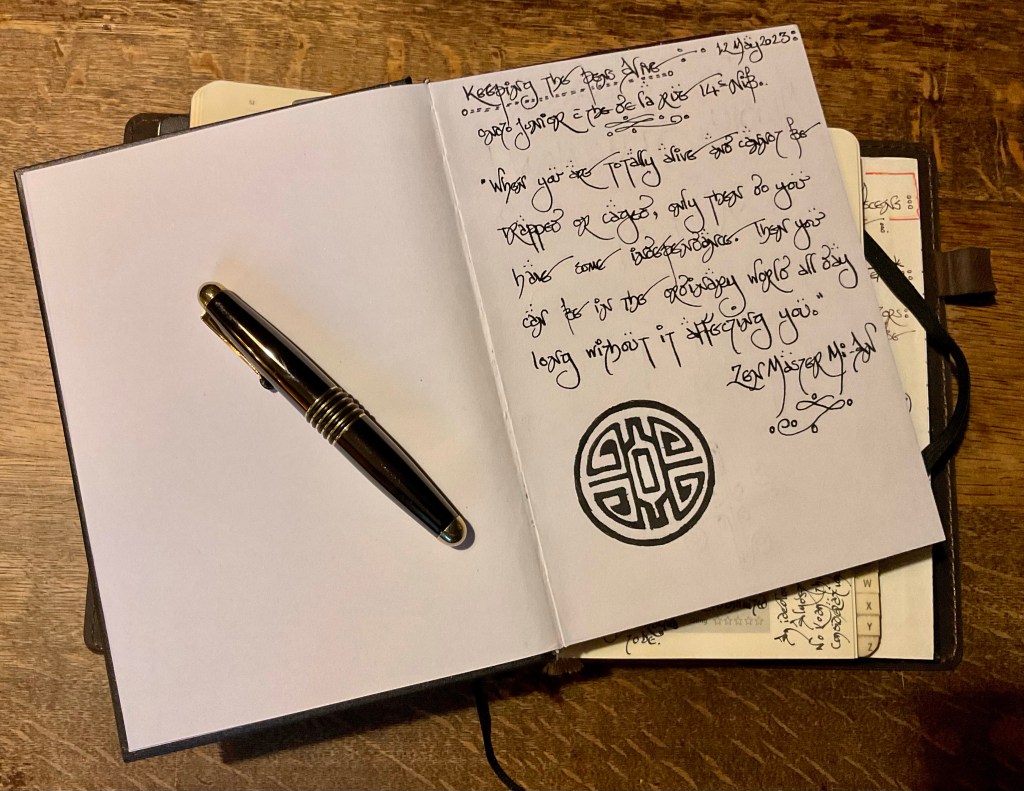 Keeping The Pens Alive 12 May 2023
Junior = The De La Rue 14c Nib..
"When you are Totally alive and cannot be
Trapped or caged, only Then do you
have some independance. Then you
can be in The ordinary world all day
long without it affecting you."
Zen Master Mi-An
W
X
Y
Z
No Koan
To be.